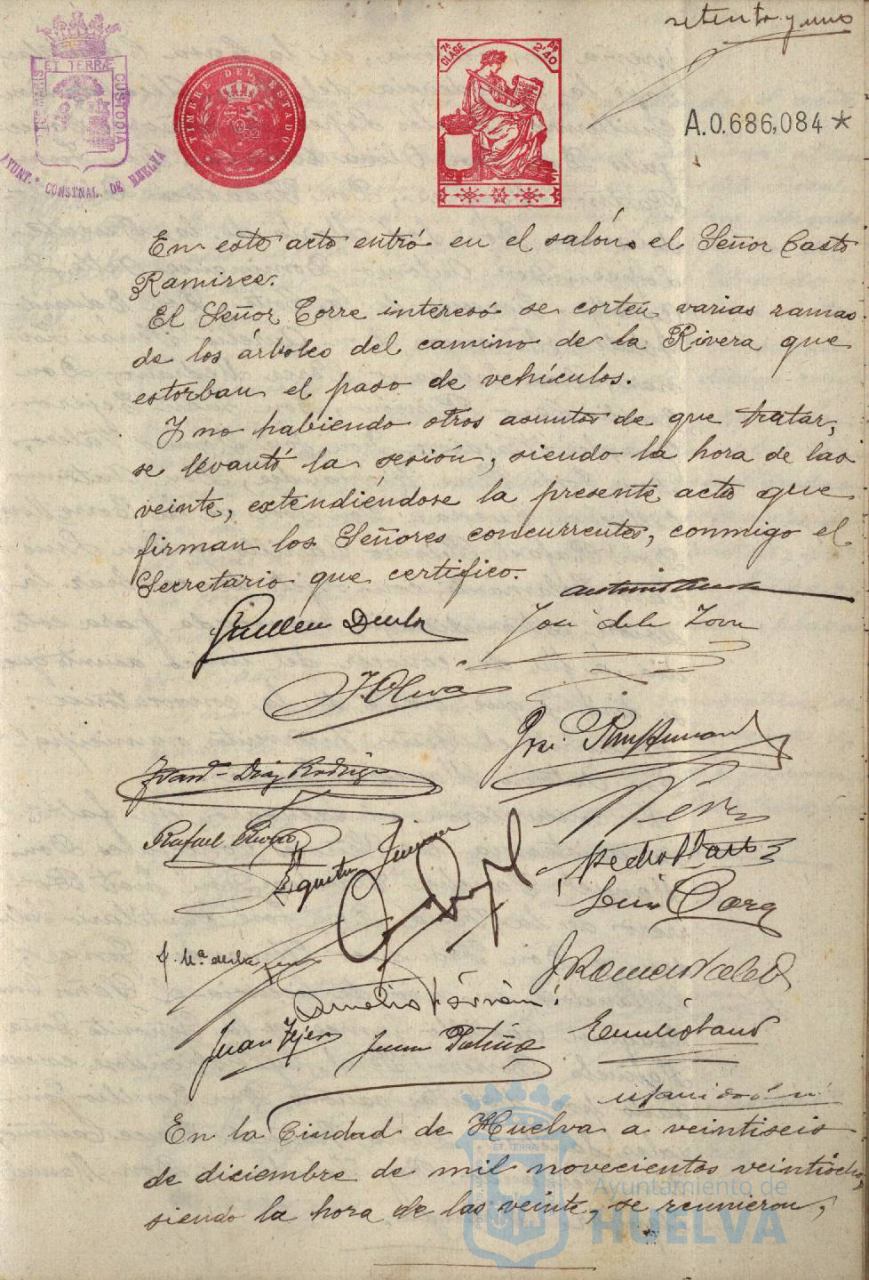 setenta y uno
PORTUS MARIS
ET TERRÆ
CUSTODIA
AYUNT.º CONSTNAL. DE HUELVA
TIMBRE DEL ESTADO
7ª CLASE
2'40
A.0.686,084*
En este acto entró en el salón, el Señor Casto
Ramirez.
El Señor Torre interesó se corten varias ramas
de los árboles del camino de la Rivera que
estorban el paso de vehículos.
Y no habiendo otros asuntos de que tratar,
se levantó la sesión, siendo la hora de las
veinte, extendiéndose la presente acta que
firman los Señores concurrentes, conmigo el
Secretario que certifico.
José de la Torre
J Oliva
Rafael
Pedro
Luis
J. Mª de la
J. Romero
Juan Tejero
Juan Patiño
Emilio
En la Ciudad de Huelva a veintiseis
de diciembre de mil novecientos veintiocho,
siendo la hora de las veinte, se reunieron,
Ayuntamiento de
HUELVA